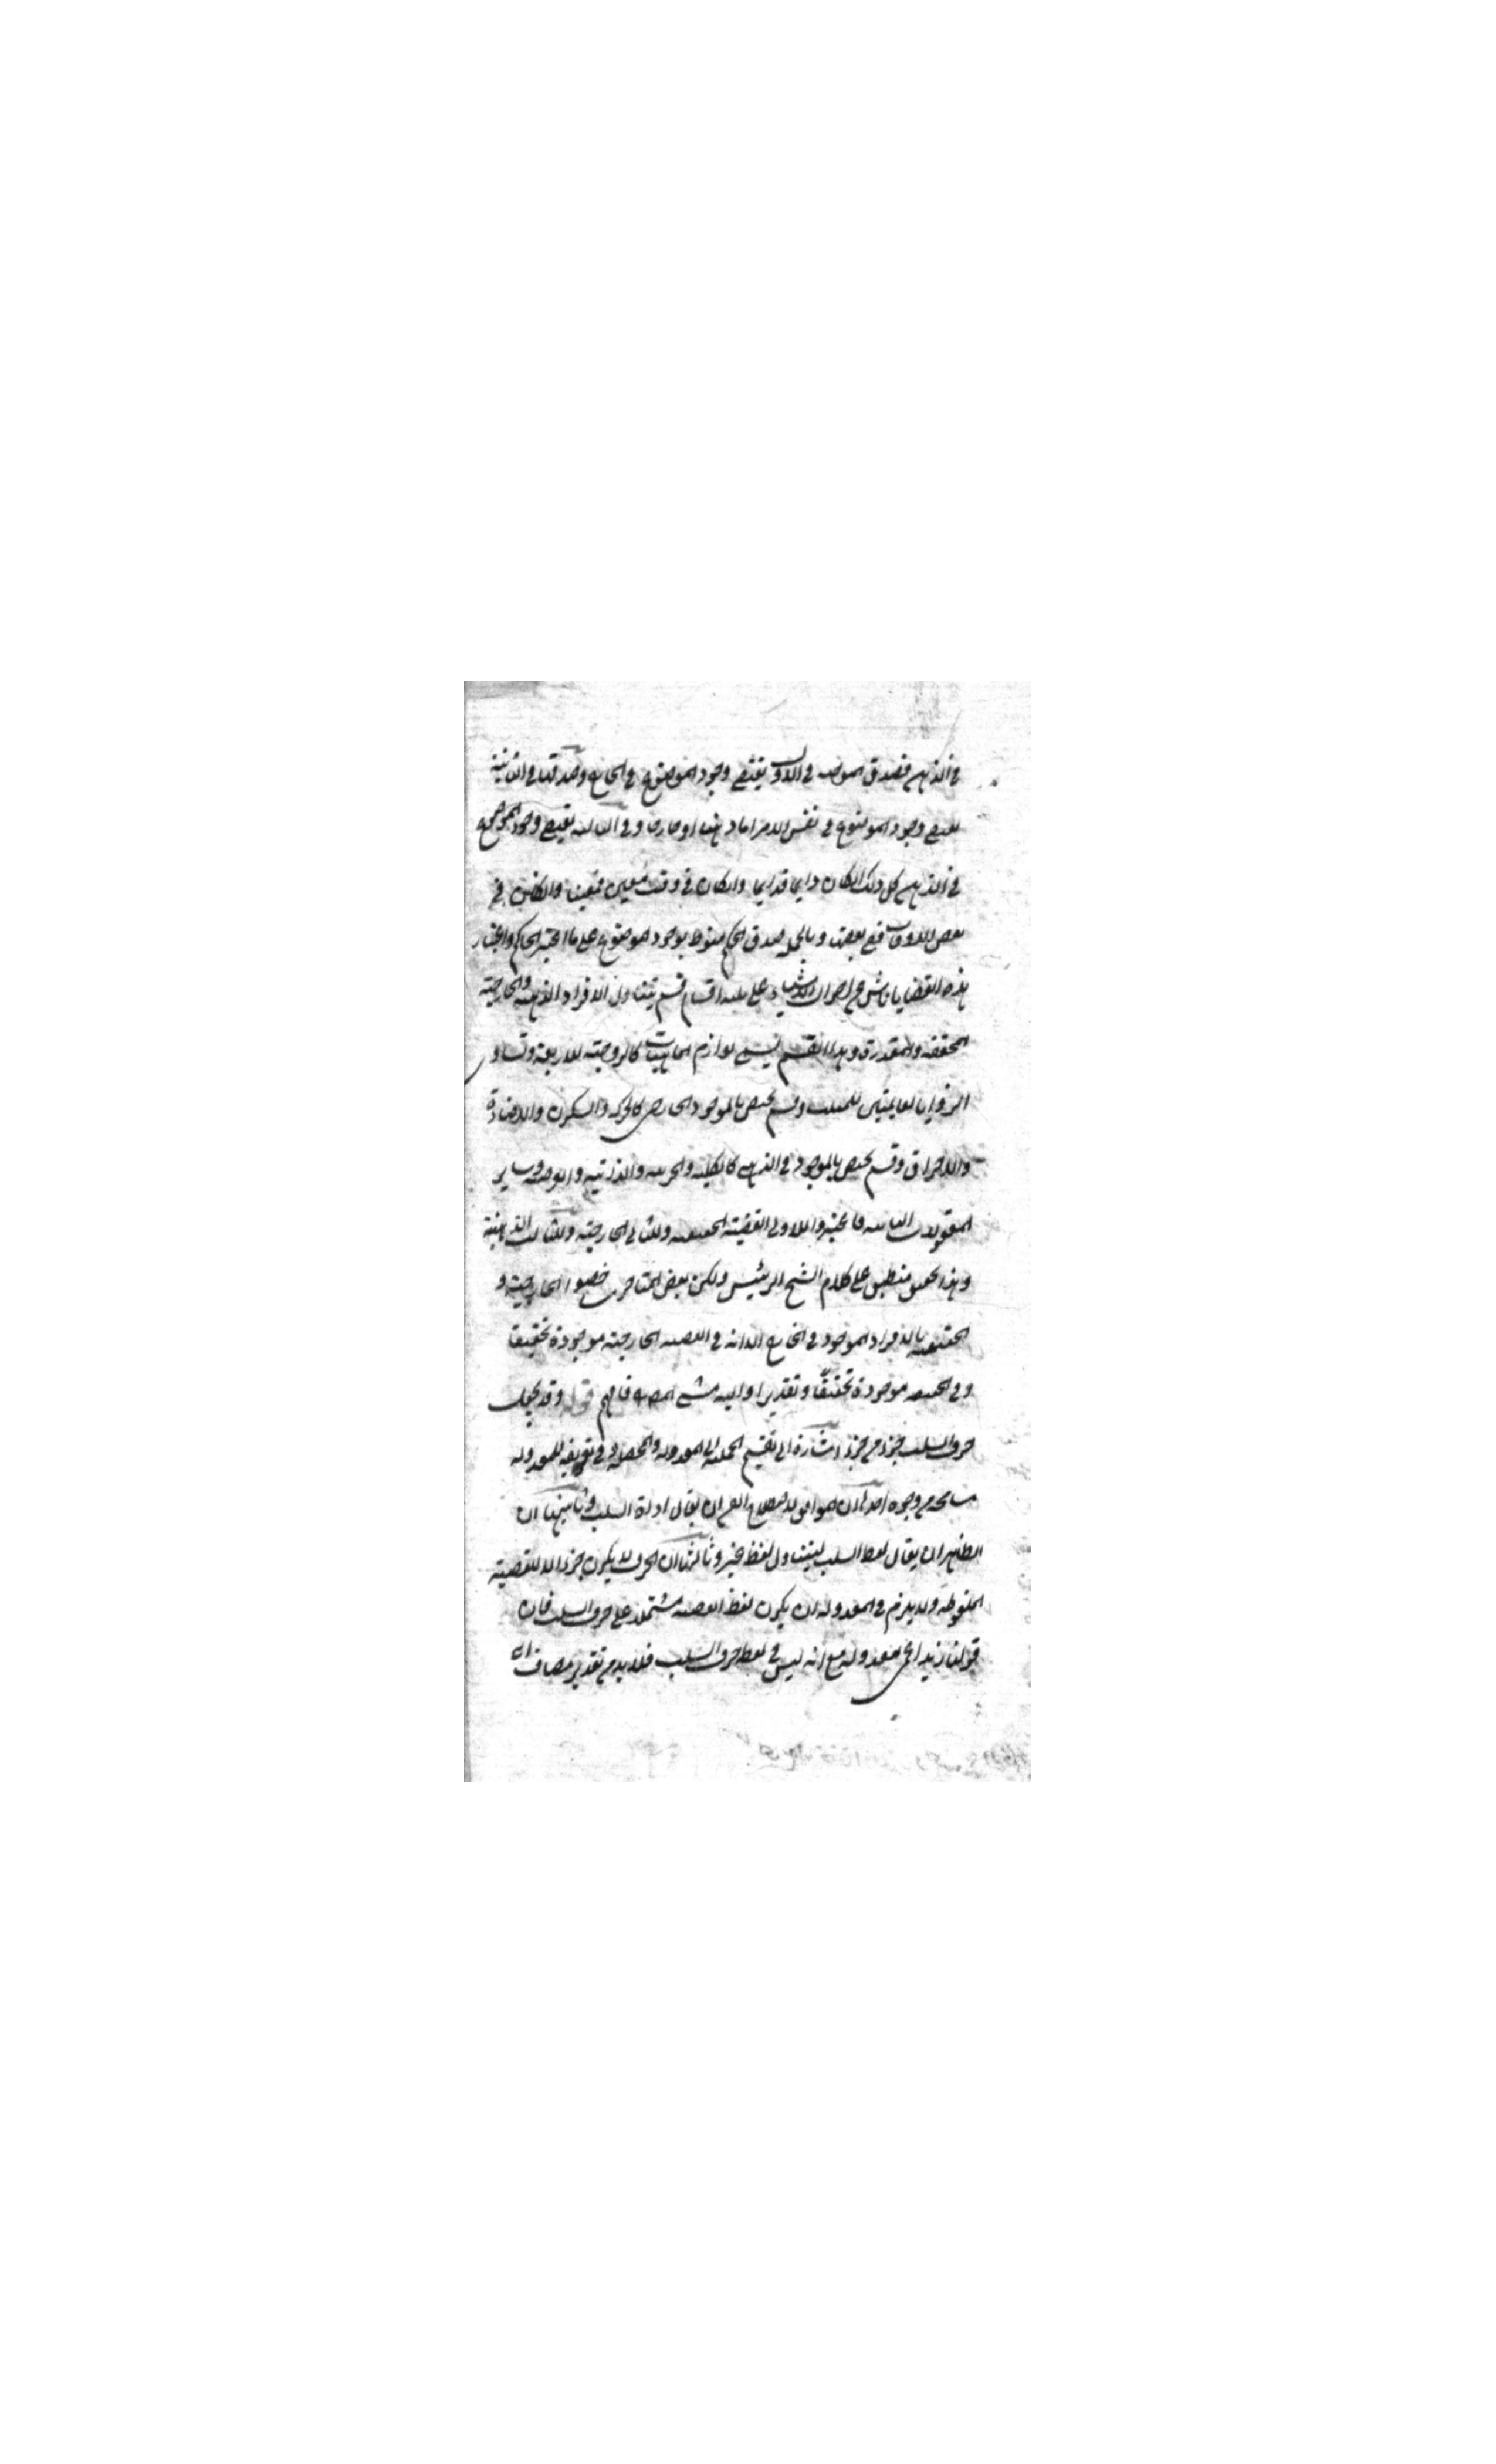 في الذهن فصدق الموجبة في الاولى يقتضى وجود الموضوع في الخارج وصدقها في الثانية
يقتضى وجود الموضوع في نفس الامر اما ذهنا او خارجا وفي الثالثة يقتضى وجود الموضوع
في الذهن كل ذلك ان كان دايما فدايما وان كان في وقت معين فمعينا وان كان في
بعض الاوقات ففي بعضها وبالجملة صدق الحكم منوط بوجود موضوع على ما اعتبر الحاكم واعتبار
هذه القضايا ناش من احوال الاشياء وهي على ثلثة اقسام قسم يتناول الافراد الذهنية والخارجية
المحققة والمقدرة وهذا القسم يسمى لوازم الماهيات كالزوجية للاربعة وتساوى
الزوايا لقايمتين للمثلث وقسم يختص بالموجود الخارجى كالحركة والسكون والاضاءة
والاحراق وقسم يختص بالموجود في الذهن كالكلية والجزئية والذاتية والعرضية وساير
المعقولات الثانية فاعتبروا للاولى القضية الحقيقية وللثانى الخارجية وللثالث الذهنية
وهذا التحقيق منطبق على كلام الشيخ الرئيس ولكن بعض المتاخرين خصوا الخارجية و
الحقيقية بالافراد الموجود في الخارج الا انه في القضية الخارجية موجودة تحقيقا
وفي الحقيقية موجودة تحقيقا وتقديرا واليه مشى المص فافهم قوله وقد يجعل
حرف السلب جزء من جزء اشارة الى تقسيم الحملية الى المعدولة والمحصلة وفي تعريفه للمعدولة
مسامحة من وجوه احدها ان الموافق لاصطلاح الفن ان يقال اداة السلب وثانيها ان
الظاهر ان يقال لفظ السلب ليتناول لفظ غير وثالثها ان الحرف لا يكون جزءا الا للقضية
الملفوظة ولا يلزم في المعدولة ان يكون لفظ القضية مشتملا على حرف السلب فان
قولنا زيد اعمى معدولة مع انه ليس في لفظه حرف السلب فلا بد من تقدير مضاف اى